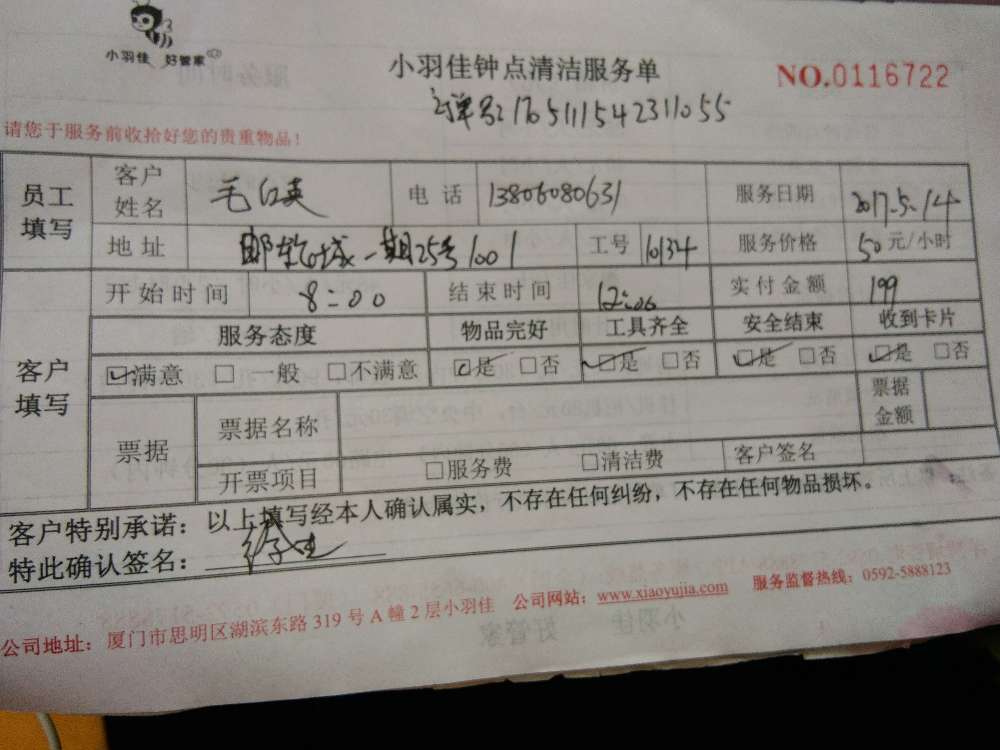 小羽佳 好管家
小羽佳钟点清洁服务单
NO.0116722
订单号:1765111542311055
请您于服务前收拾好您的贵重物品！
员工填写 客户姓名 毛白英 电话 13806080631 服务日期 2017.5.14
地址 邮轮城一期25号1001 工号 10134 服务价格 50元/小时
客户填写 开始时间 8:00 结束时间 12:00 实付金额 199
服务态度 物品完好 工具齐全 安全结束 收到卡片
☑满意 □一般 □不满意 ☑是 □否 ☑是 □否 ☑是 □否 ☑是 □否
票据 票据名称 票据金额
开票项目 □服务费 □清洁费 客户签名
客户特别承诺：以上填写经本人确认属实，不存在任何纠纷，不存在任何物品损坏。
特此确认签名：
公司地址：厦门市思明区湖滨东路 319 号 A 幢 2 层小羽佳 公司网站：www.xiaoyujia.com 服务监督热线：0592-5888123